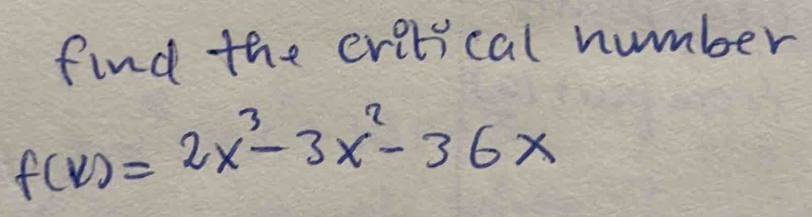 find the critical number
f(x) = 2x³ - 3x² - 36x